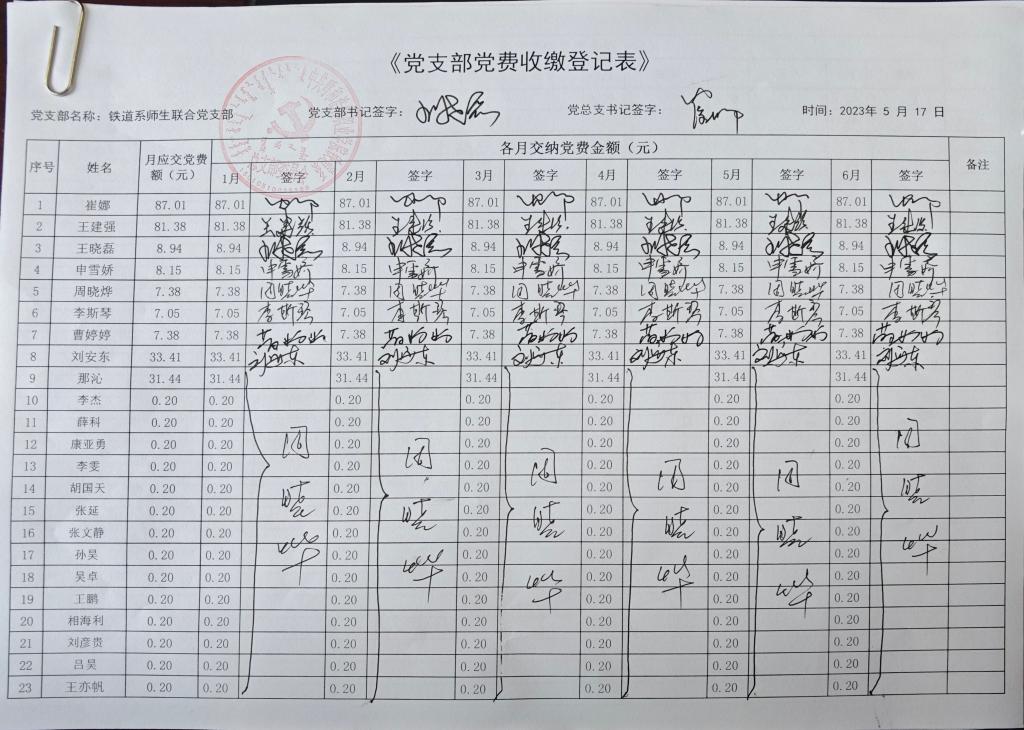 《党支部党费收缴登记表》
党支部名称：铁道系师生联合党支部 党支部书记签字： 党总支书记签字： 时间：2023年 5 月 17 日
序号 姓名 月应交党费额（元） 各月交纳党费金额（元） 备注
1月 签字 2月 签字 3月 签字 4月 签字 5月 签字 6月 签字
1 崔娜 87.01 87.01 87.01 87.01 87.01 87.01 87.01
2 王建强 81.38 81.38 王建强 81.38 王建强 81.38 王建强 81.38 王建强 81.38 王建强 81.38 王建强
3 王晓磊 8.94 8.94 8.94 8.94 8.94 8.94 8.94
4 申雪娇 8.15 8.15 申雪娇 8.15 申雪娇 8.15 申雪娇 8.15 申雪娇 8.15 申雪娇 8.15 申雪娇
5 周晓烨 7.38 7.38 周晓烨 7.38 周晓烨 7.38 周晓烨 7.38 周晓烨 7.38 周晓烨 7.38 周晓烨
6 李斯琴 7.05 7.05 李斯琴 7.05 李斯琴 7.05 李斯琴 7.05 李斯琴 7.05 李斯琴 7.05 李斯琴
7 曹婷婷 7.38 7.38 7.38 7.38 7.38 7.38 7.38
8 刘安东 33.41 33.41 刘安东 33.41 刘安东 33.41 刘安东 33.41 刘安东 33.41 刘安东 33.41 刘安东
9 那沁 31.44 31.44 31.44 31.44 31.44 31.44 31.44
10 李杰 0.20 0.20 0.20 0.20 0.20 0.20 0.20
11 薛科 0.20 0.20 0.20 0.20 0.20 0.20 0.20
12 康亚勇 0.20 0.20 周晓烨 0.20 周晓烨 0.20 周晓烨 0.20 周晓烨 0.20 周晓烨 0.20 周晓烨
13 李雯 0.20 0.20 0.20 0.20 0.20 0.20 0.20
14 胡国天 0.20 0.20 0.20 0.20 0.20 0.20 0.20
15 张延 0.20 0.20 0.20 0.20 0.20 0.20 0.20
16 张文静 0.20 0.20 0.20 0.20 0.20 0.20 0.20
17 孙昊 0.20 0.20 0.20 0.20 0.20 0.20 0.20
18 吴卓 0.20 0.20 0.20 0.20 0.20 0.20 0.20
19 王鹏 0.20 0.20 0.20 0.20 0.20 0.20 0.20
20 相海利 0.20 0.20 0.20 0.20 0.20 0.20 0.20
21 刘彦贵 0.20 0.20 0.20 0.20 0.20 0.20 0.20
22 吕昊 0.20 0.20 0.20 0.20 0.20 0.20 0.20
23 王亦帆 0.20 0.20 0.20 0.20 0.20 0.20 0.20